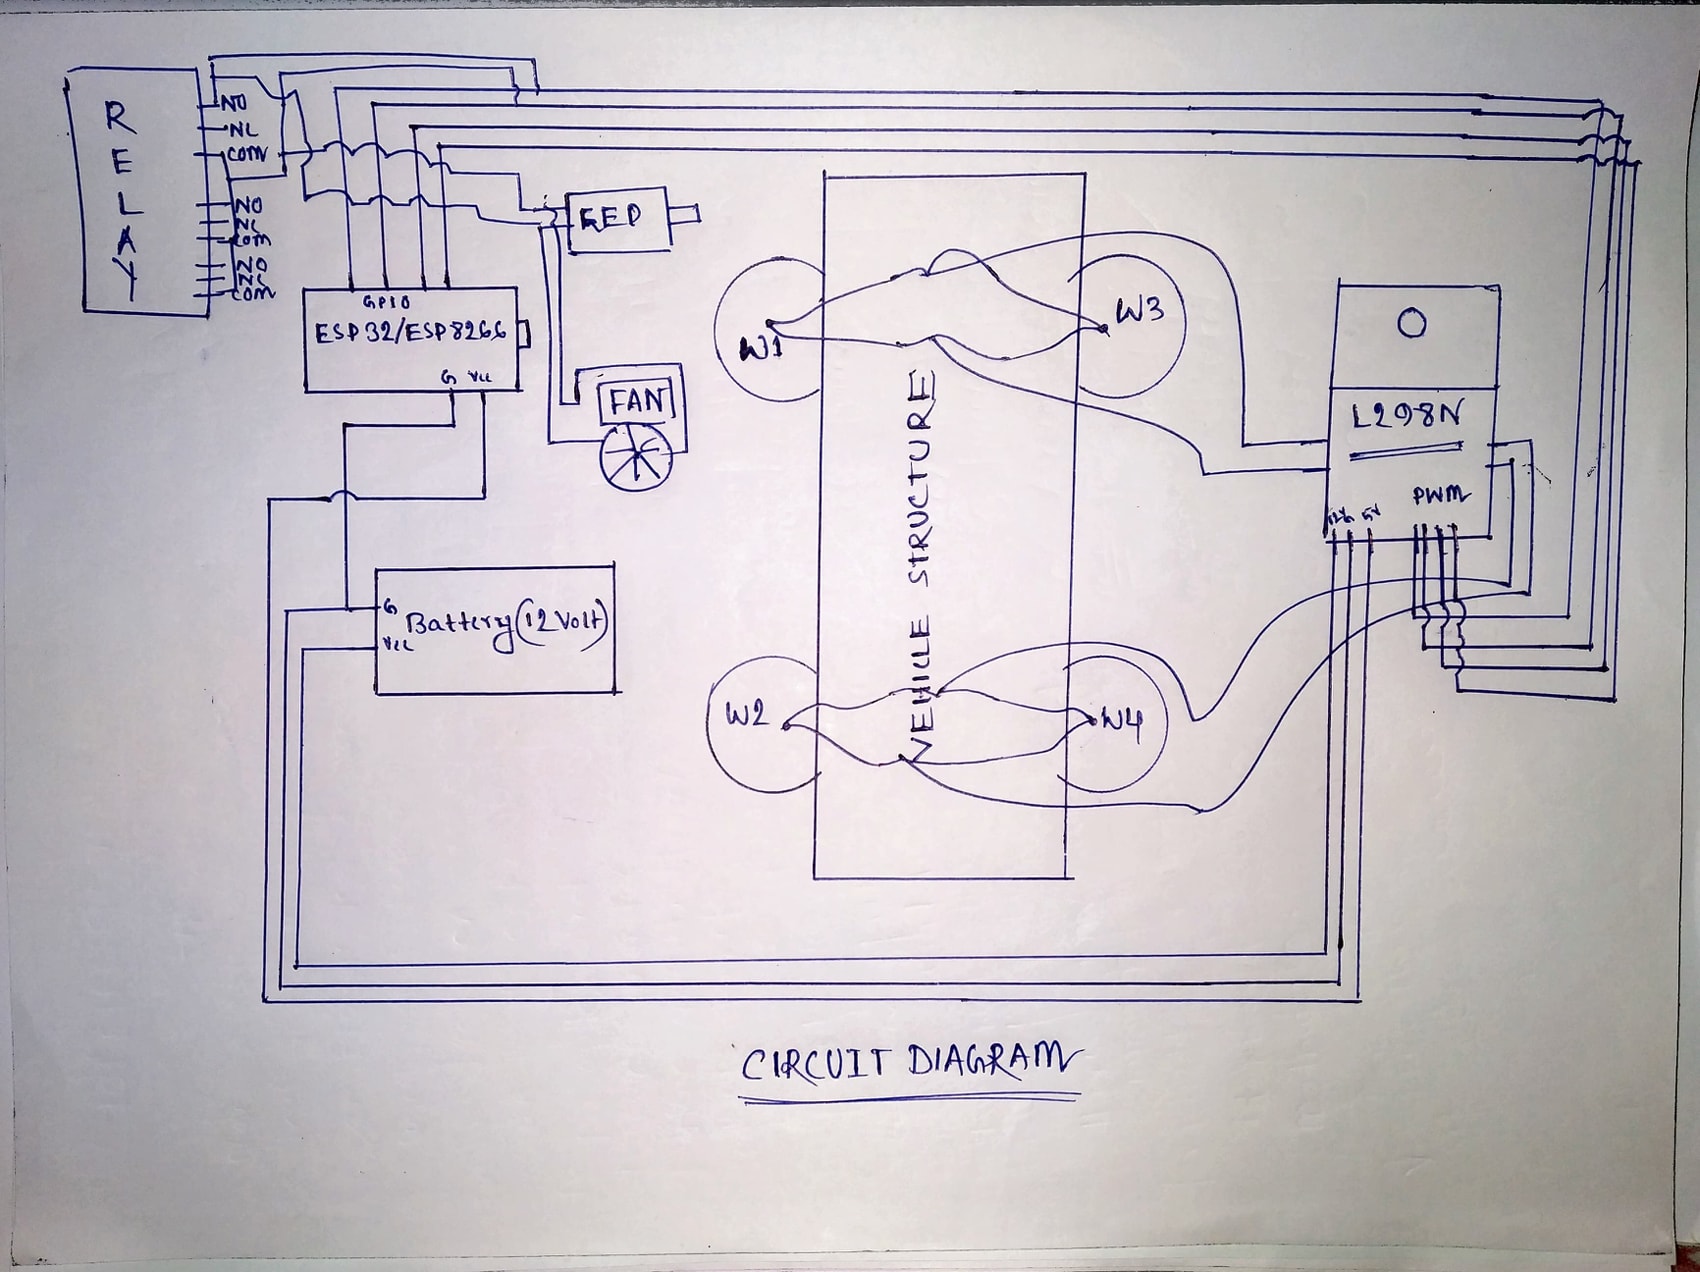 RELAY
NO
NC
COM
NO
NC
COM
NO
NC
COM
GPIO
ESP32/ESP8266
G VCC
FAN
Battery(12 Volt)
G
VCC
W1
W3
W2
W4
VEHICLE STRUCTURE
L298N
PWM
5V
CIRCUIT DIAGRAM